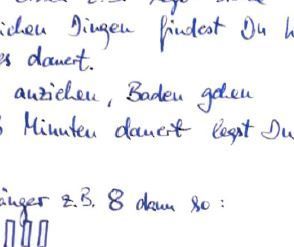 ichen Dingen findest Du h
es dauert.
anziehen, Baden gehen
Minuten dauert legst Du
änger z.B. 8 dann so: